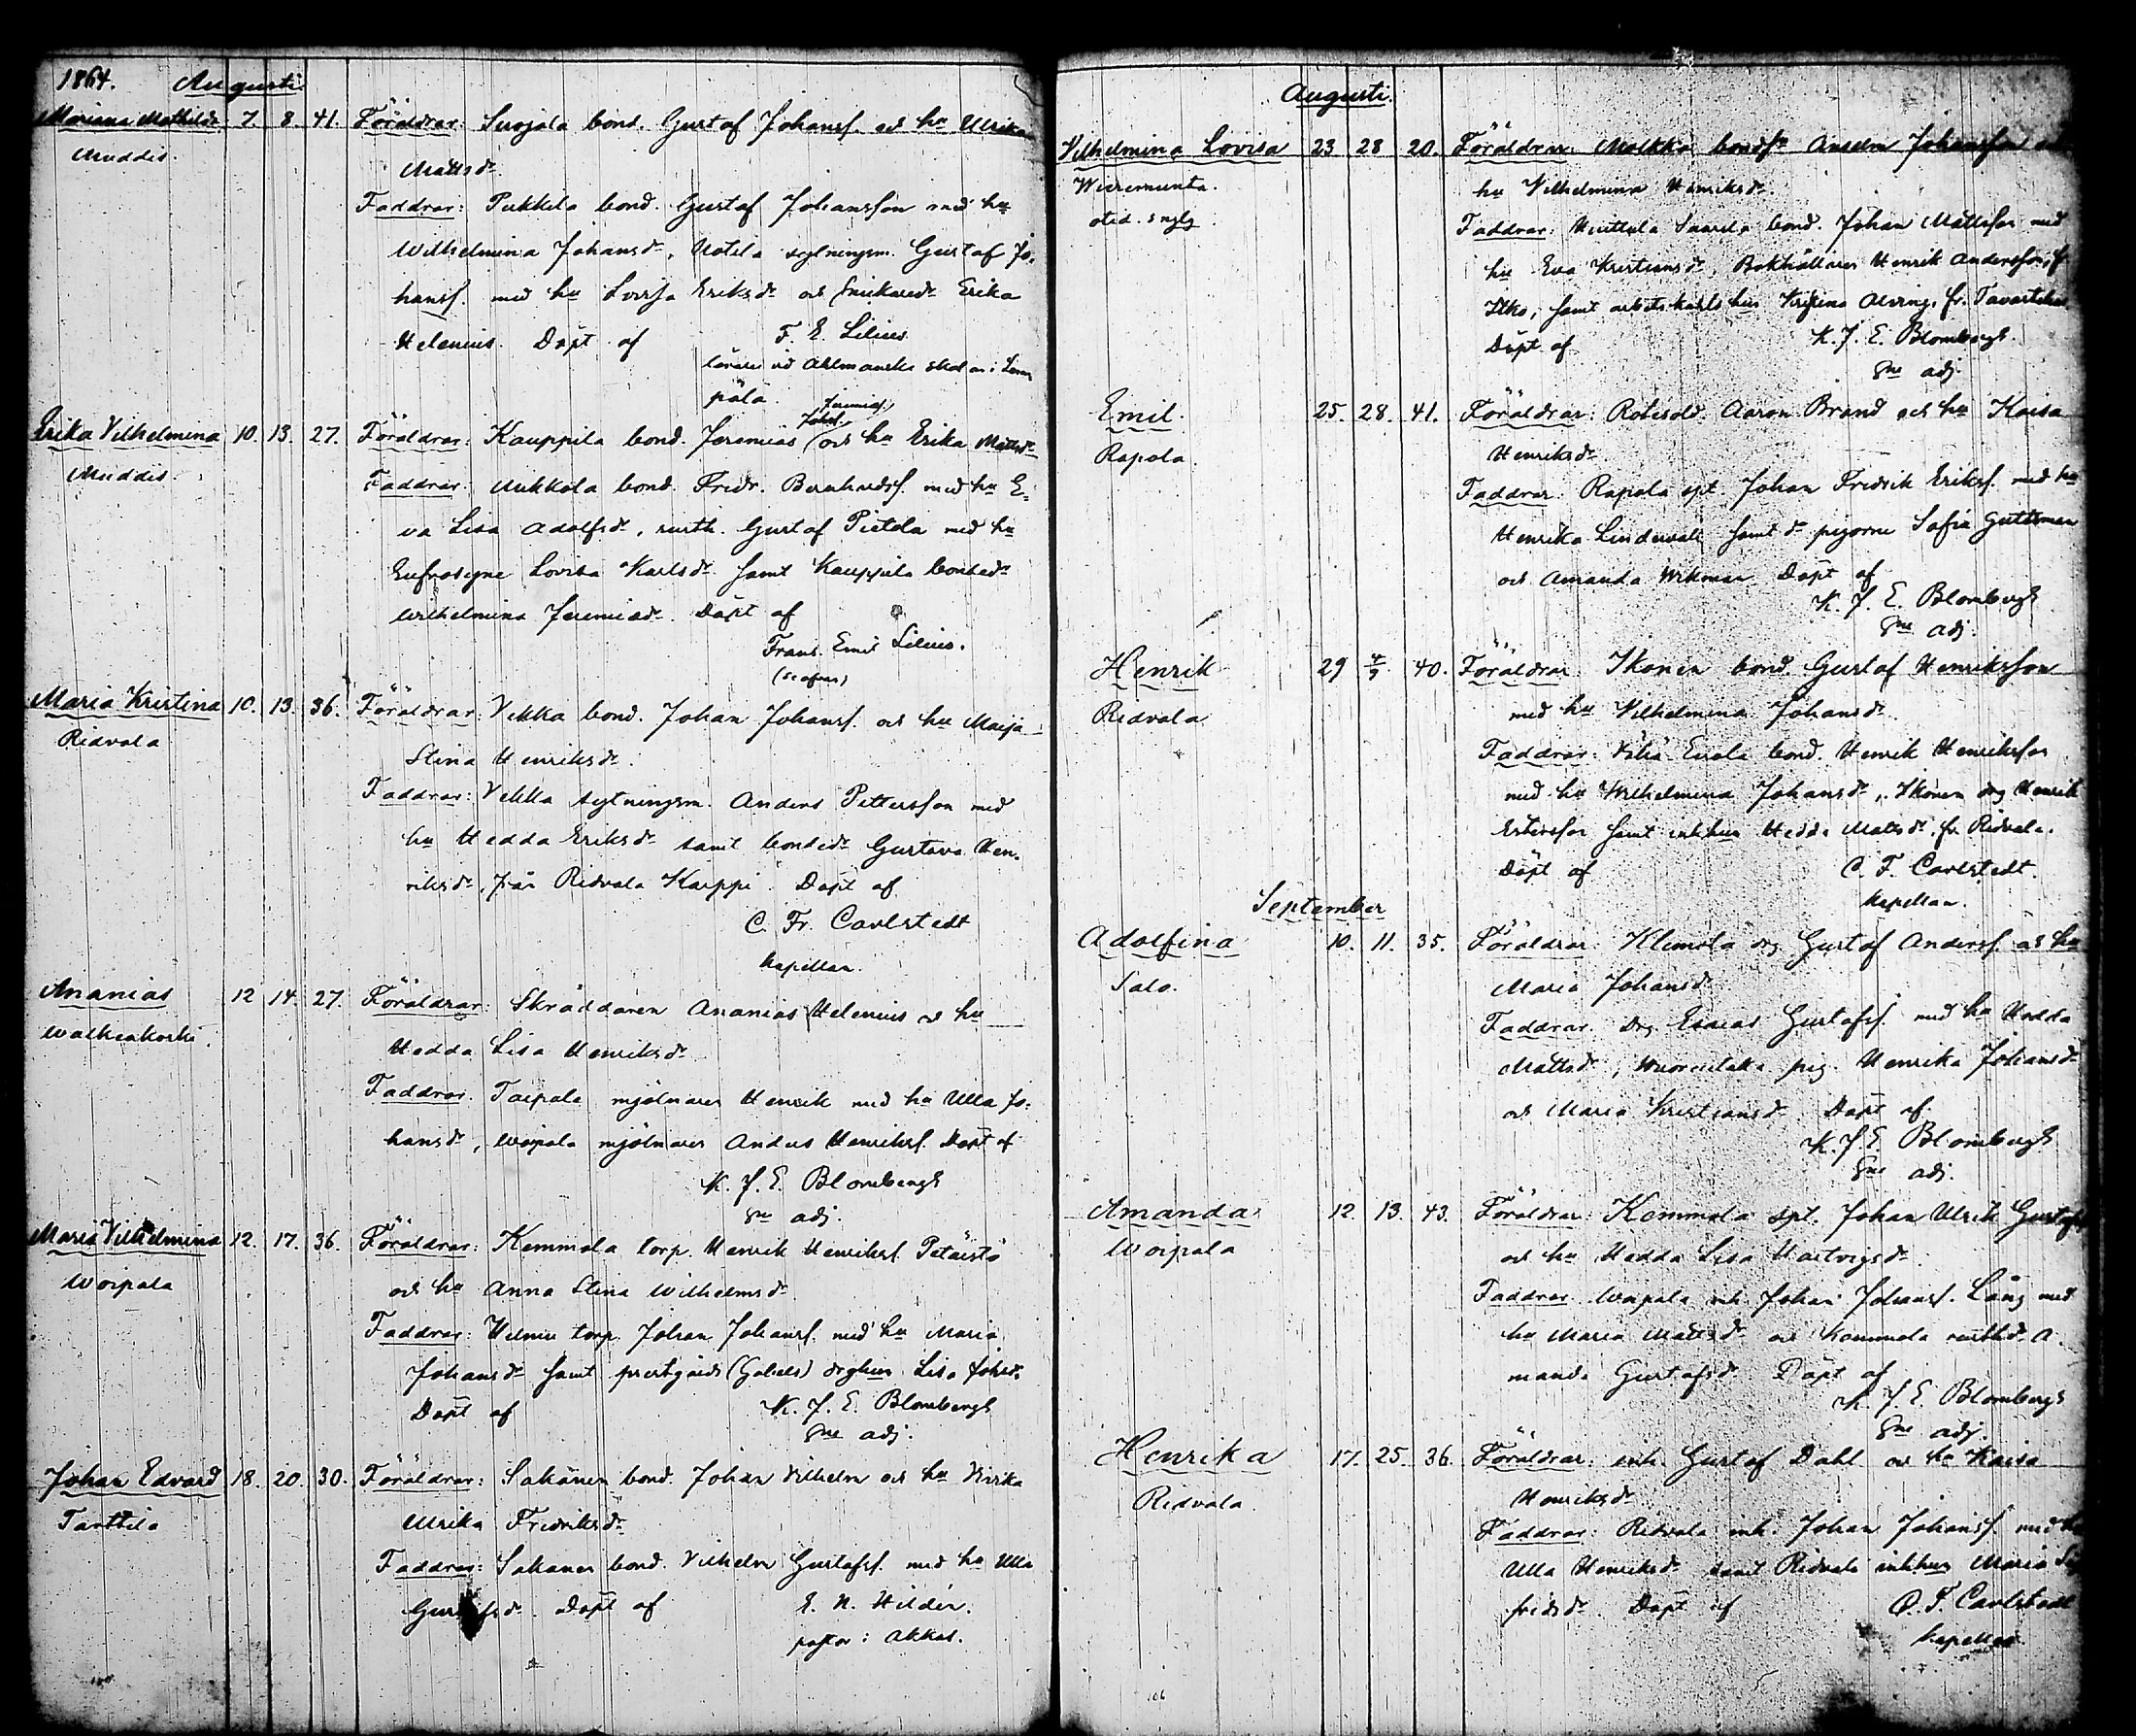 1864. Augusti
Mariana Mathilda 7. 8. 41. Föräldrar: Suojala bond. Gustaf Johansf. och hu Ulrika
Muddis. Mattsdr
Faddrar: Pukkila bond. Gustaf Johansson med hu
Wilhelmina Johansdr, Uotila sytningsm. Gustaf Jo-
hansf. med hu Lovisa Eriksdr och Snickaredr Erika
Helenius. Döpt af F. E. Lilius
lärare vid Ahlmanska skolan i Lem
päla.
Jeremiasf.
Johsf.
Erika Vilhelmina 10. 13. 27. Föräldrar: Kauppila bond. Jeremias och hu Erika Mattsdr
Muddis. Faddrar: Mikkola bond. Fridr. Bernhardsf. med hu E-
va Lisa Adolfsdr, rusth. Gustaf Pietola med hu
Eufrosyne Lovisa Karlsdr samt Kauppila bondedr
Wilhelmina Jeremiasdr. Döpt af
Frans Emil Lilius.
Maria Kristina 10. 13. 36. Föräldrar: Vekka bond. Johan Johansf. och hu Maija
Ridvala Stina Henriksdr.
Faddrar: Vekka sytningsm. Anders Pettersson med
hu Hedda Eriksdr samt bondedr Gustava Hen-
riksdr, från Ridvala Kaippi. Döpt af
C. Fr. Carlstedt
Kapellan.
Ananias 12 14. 27. Föräldrar: Skräddaren Ananias Helenius o hu
Walkeakoski. Hedda Lisa Henriksdr
Faddrar. Taipale mjölnaren Henrik med hu Ulla Jo-
hansdr, Woipala mjölnaren Anders Henriksf. Döpt af
K. J. E. Blombergh
Sne adj.
Maria Vilhelmina 12. 17. 36. Föräldrar: Kemmola torp. Henrik Henriksf. Petäistö
Woipala och hu Anna Stina Wilhelmsdr
Faddrar: torp. Johan Johansf. med hu Maria
Johansdr samt prestgårds drghun Lisa Johsdr.
Döpt af K. J. E. Blombergh
Sne adj.
Johan Edvard 18. 20. 30. Föräldrar: Sakanen bond. Johan Vilhelm och hu
Tarttila Ulrika Fredriksdr
Faddrar: Sakanen bond. Vilhelm Gustafsf. med hu Ulla
Gustafsdr. Döpt af E. N. Hildén.
pastor i Akkas.
Augusti.
Vilhelmina Lovisa 23 28 20. Föräldrar: Molkka Anselm Johansson och
hu Vilhelmina Henriksdr.
Faddrar: bond. Johan Mattsson med
hu Eva Kristiansdr, Bokhållaren Henrik Andersson, fr
samt arbetskarls hu Kristina fr. Tavastehus
Döpt af K. J. E. Blombergh
Sne adj.
Emil. 25. 28. 41. Föräldrar: Rotesold. Aaron Brand och hu Kaisa
Rapola. Henriksdr
Faddrar: Rapola spt. Johan Fredrik Eriksf. med hu
Henrika Lindevall samt pigorna Sofia
och Amanda Döpt af
K. J. E. Blombergh
Sne adj.
Henrik 29 4/9. 40. Föräldrar: Ikonen bond. Gustaf Henriksson
Ridvala med hu Vilhelmina Johansdr
Faddrar: bond. Henrik Henriksson
med hu Wilhelmina Johansdr, Ikonen drg Henrik
samt inhhus Hedda Mattsdr, fr. Ridvala.
Döpt af C. F. Carlstedt.
Kapellan.
September
Adolfina 10. 11. 35. Föräldrar: Klemola drg Gustaf Andersf. och hu
Salo. Maria Johansdr
Faddrar. Drg Esaias Gustafsf. med hu Hedda
Mattsdr, pig. Henrika Johansdr
och Maria Kristiansdr. Döpt af
K. J. E. Blombergh
Sne adj.
Amanda 12. 13. 43. Föräldrar: Kemmola spt. Johan Ulrik Gustafsf
Woipala och hu Hedda Lisa Hartvigsdr.
Faddrar. Woipala inh. Johan Johansf. Lång med
hu Maria Mattsdr och Kemmola rusthdr A-
manda Gustafsdr Döpt af
K. J. E. Blombergh
Sne adj.
Henrika 17. 25. 36. Föräldrar: inh. Gustaf Dahl och hu Kaisa
Ridvala. Henriksdr
Faddrar: Ridvala inh. Johan Johansf. med hu
Ulla Henriksdr samt Ridvala inhhus Maria Sig
fridsdr. Döpt af C. F. Carlstedt
Kapellan.
106